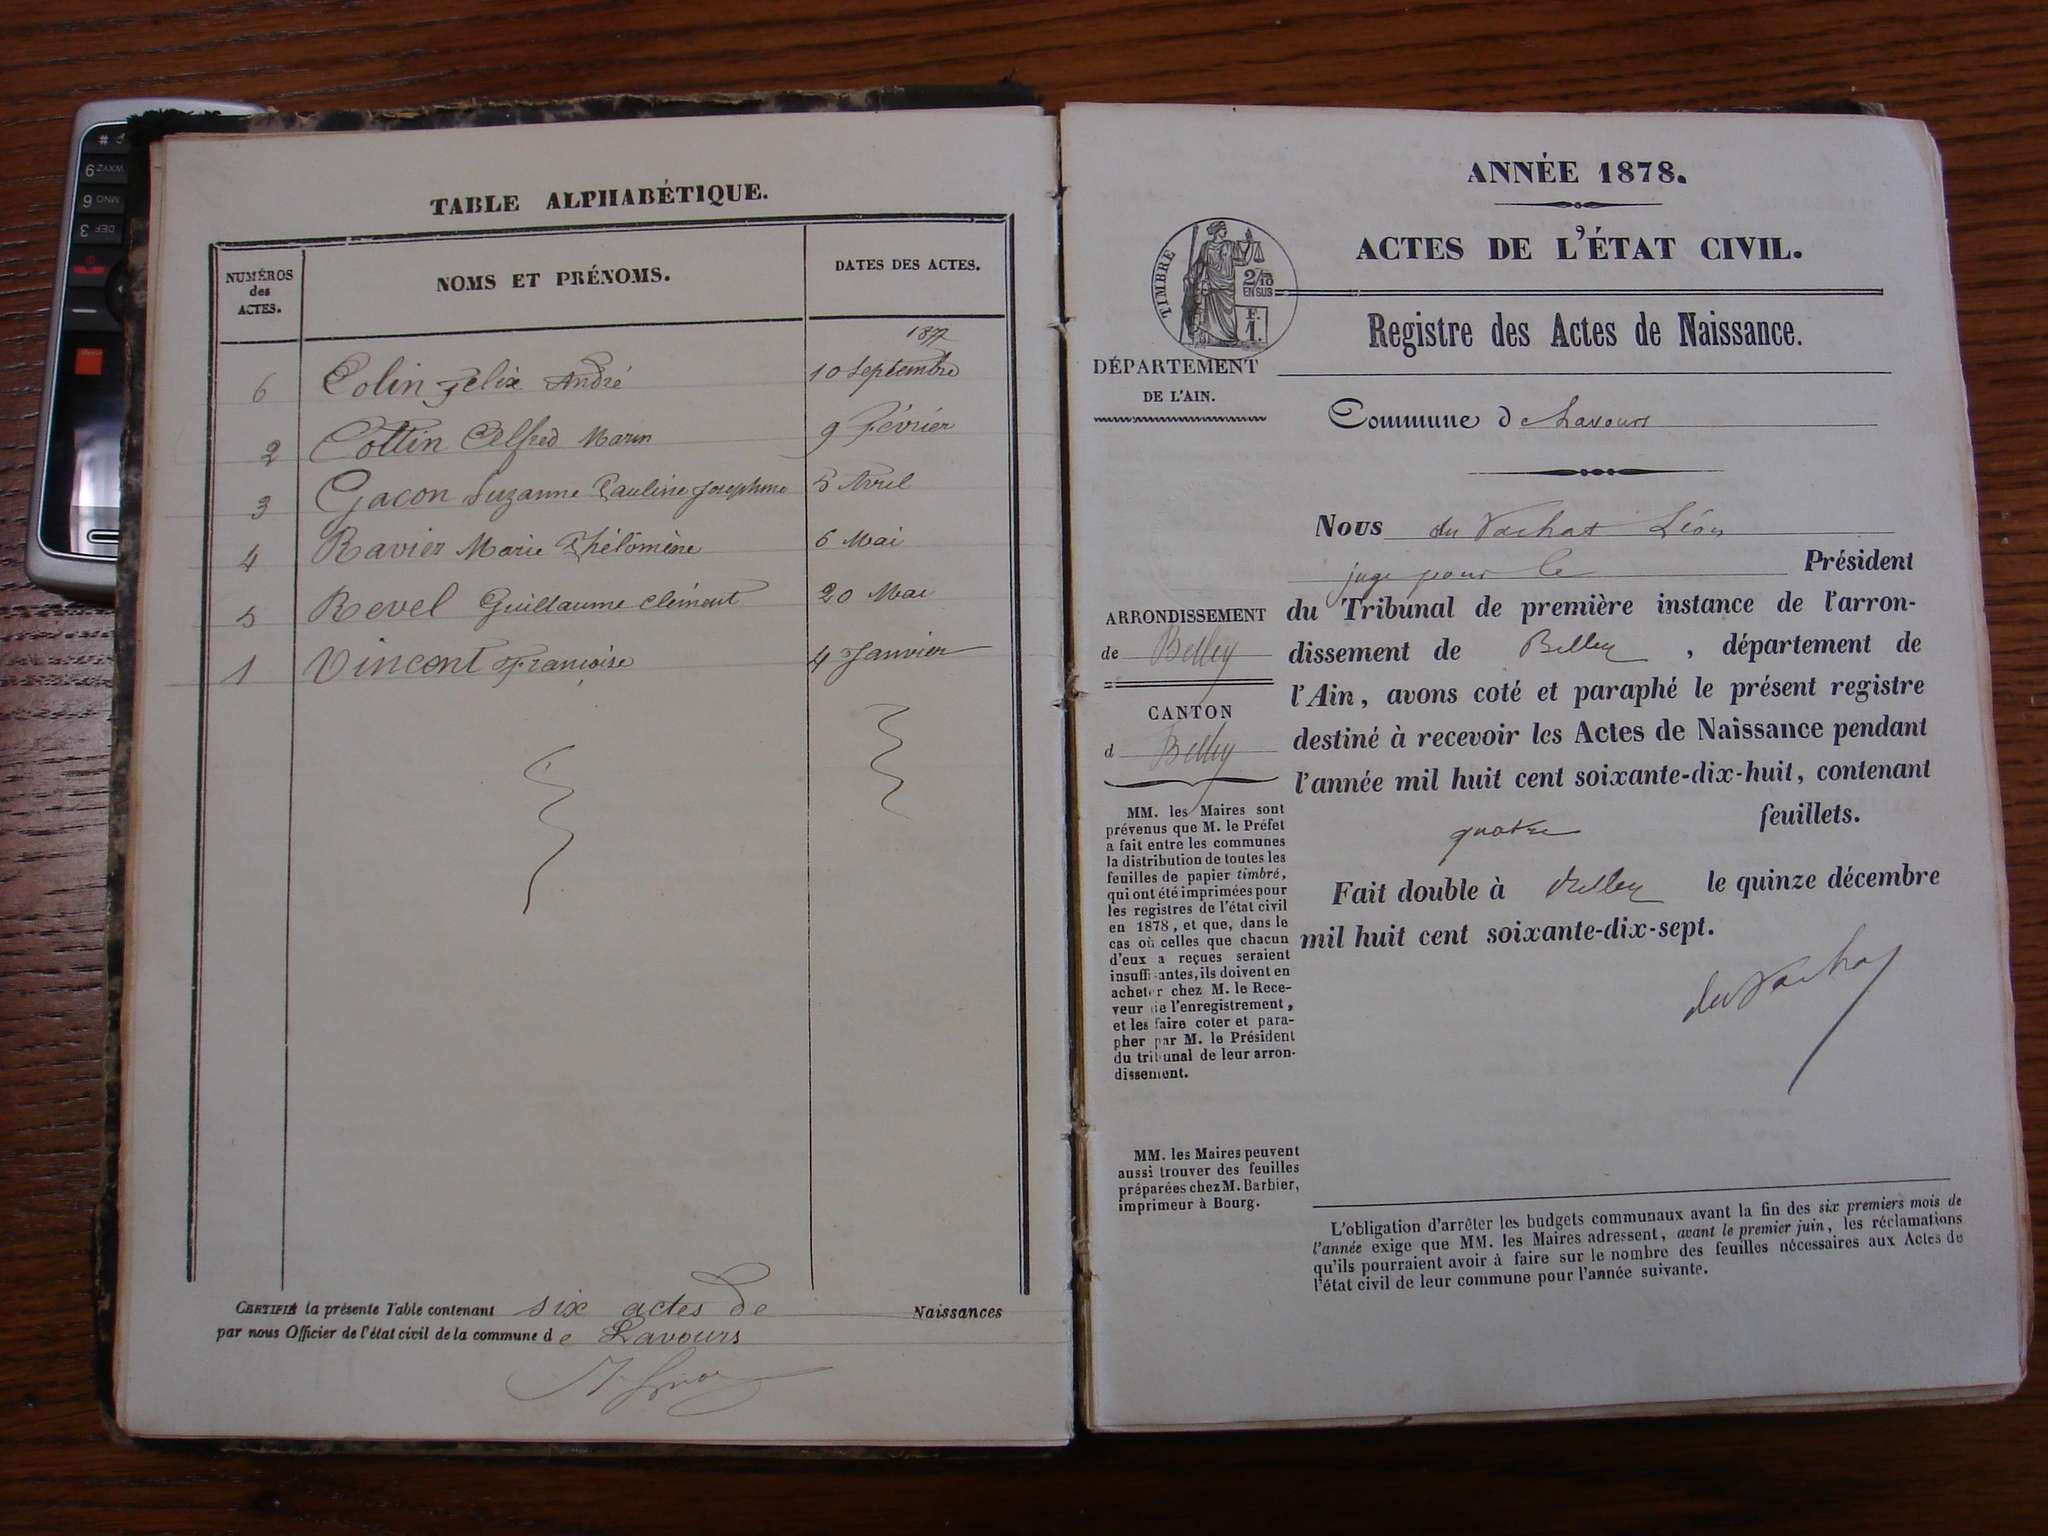 TABLE ALPHABÉTIQUE.
NUMÉROS des ACTES.
NOMS ET PRÉNOMS.
DATES DES ACTES.
1877
6 Colin Felix André 10 Septembre
2 Cottin Alfred Marin 9 Février
3 Gacon Suzanne Pauline Josephine 5 Avril
4 Ravier Marie Philomène 6 Mai
5 Revel Guillaume Clément 20 Mai
1 Vincent Françoise 4 Janvier
CERTIFIÉ la présente Table contenant six actes de Naissances
par nous Officier de l'état civil de la commune de Lavours
ANNÉE 1878.
ACTES DE L'ÉTAT CIVIL.
TIMBRE
2/10
EN SUS
F.
1.
Registre des Actes de Naissance.
DÉPARTEMENT
DE L'AIN.
Commune de Lavours
Nous du Vachat Léon
juge pour le Président
du Tribunal de première instance de l'arron-
dissement de Belley, département de
l'Ain, avons coté et paraphé le présent registre
destiné à recevoir les Actes de Naissance pendant
l'année mil huit cent soixante-dix-huit, contenant
quatre feuillets.
Fait double à Belley le quinze décembre
mil huit cent soixante-dix-sept.
du Vachat
ARRONDISSEMENT
de Belley
CANTON
d Belley
MM. les Maires sont
prévenus que M. le Préfet
a fait entre les communes
la distribution de toutes les
feuilles de papier timbré,
qui ont été imprimées pour
les registres de l'état civil
en 1878, et que, dans le
cas où celles que chacun
d'eux a reçues seraient
insuffisantes, ils doivent en
acheter chez M. le Rece-
veur de l'enregistrement,
et les faire coter et para-
pher par M. le Président
du tribunal de leur arron-
dissement.
MM. les Maires peuvent
aussi trouver des feuilles
préparées chez M. Barbier,
imprimeur à Bourg.
L'obligation d'arrêter les budgets communaux avant la fin des six premiers mois de
l'année exige que MM. les Maires adressent, avant le premier juin, les réclamations
qu'ils pourraient avoir à faire sur le nombre des feuilles nécessaires aux Actes de
l'état civil de leur commune pour l'année suivante.
#
WXYZ 9
MNO 6
DEF 3